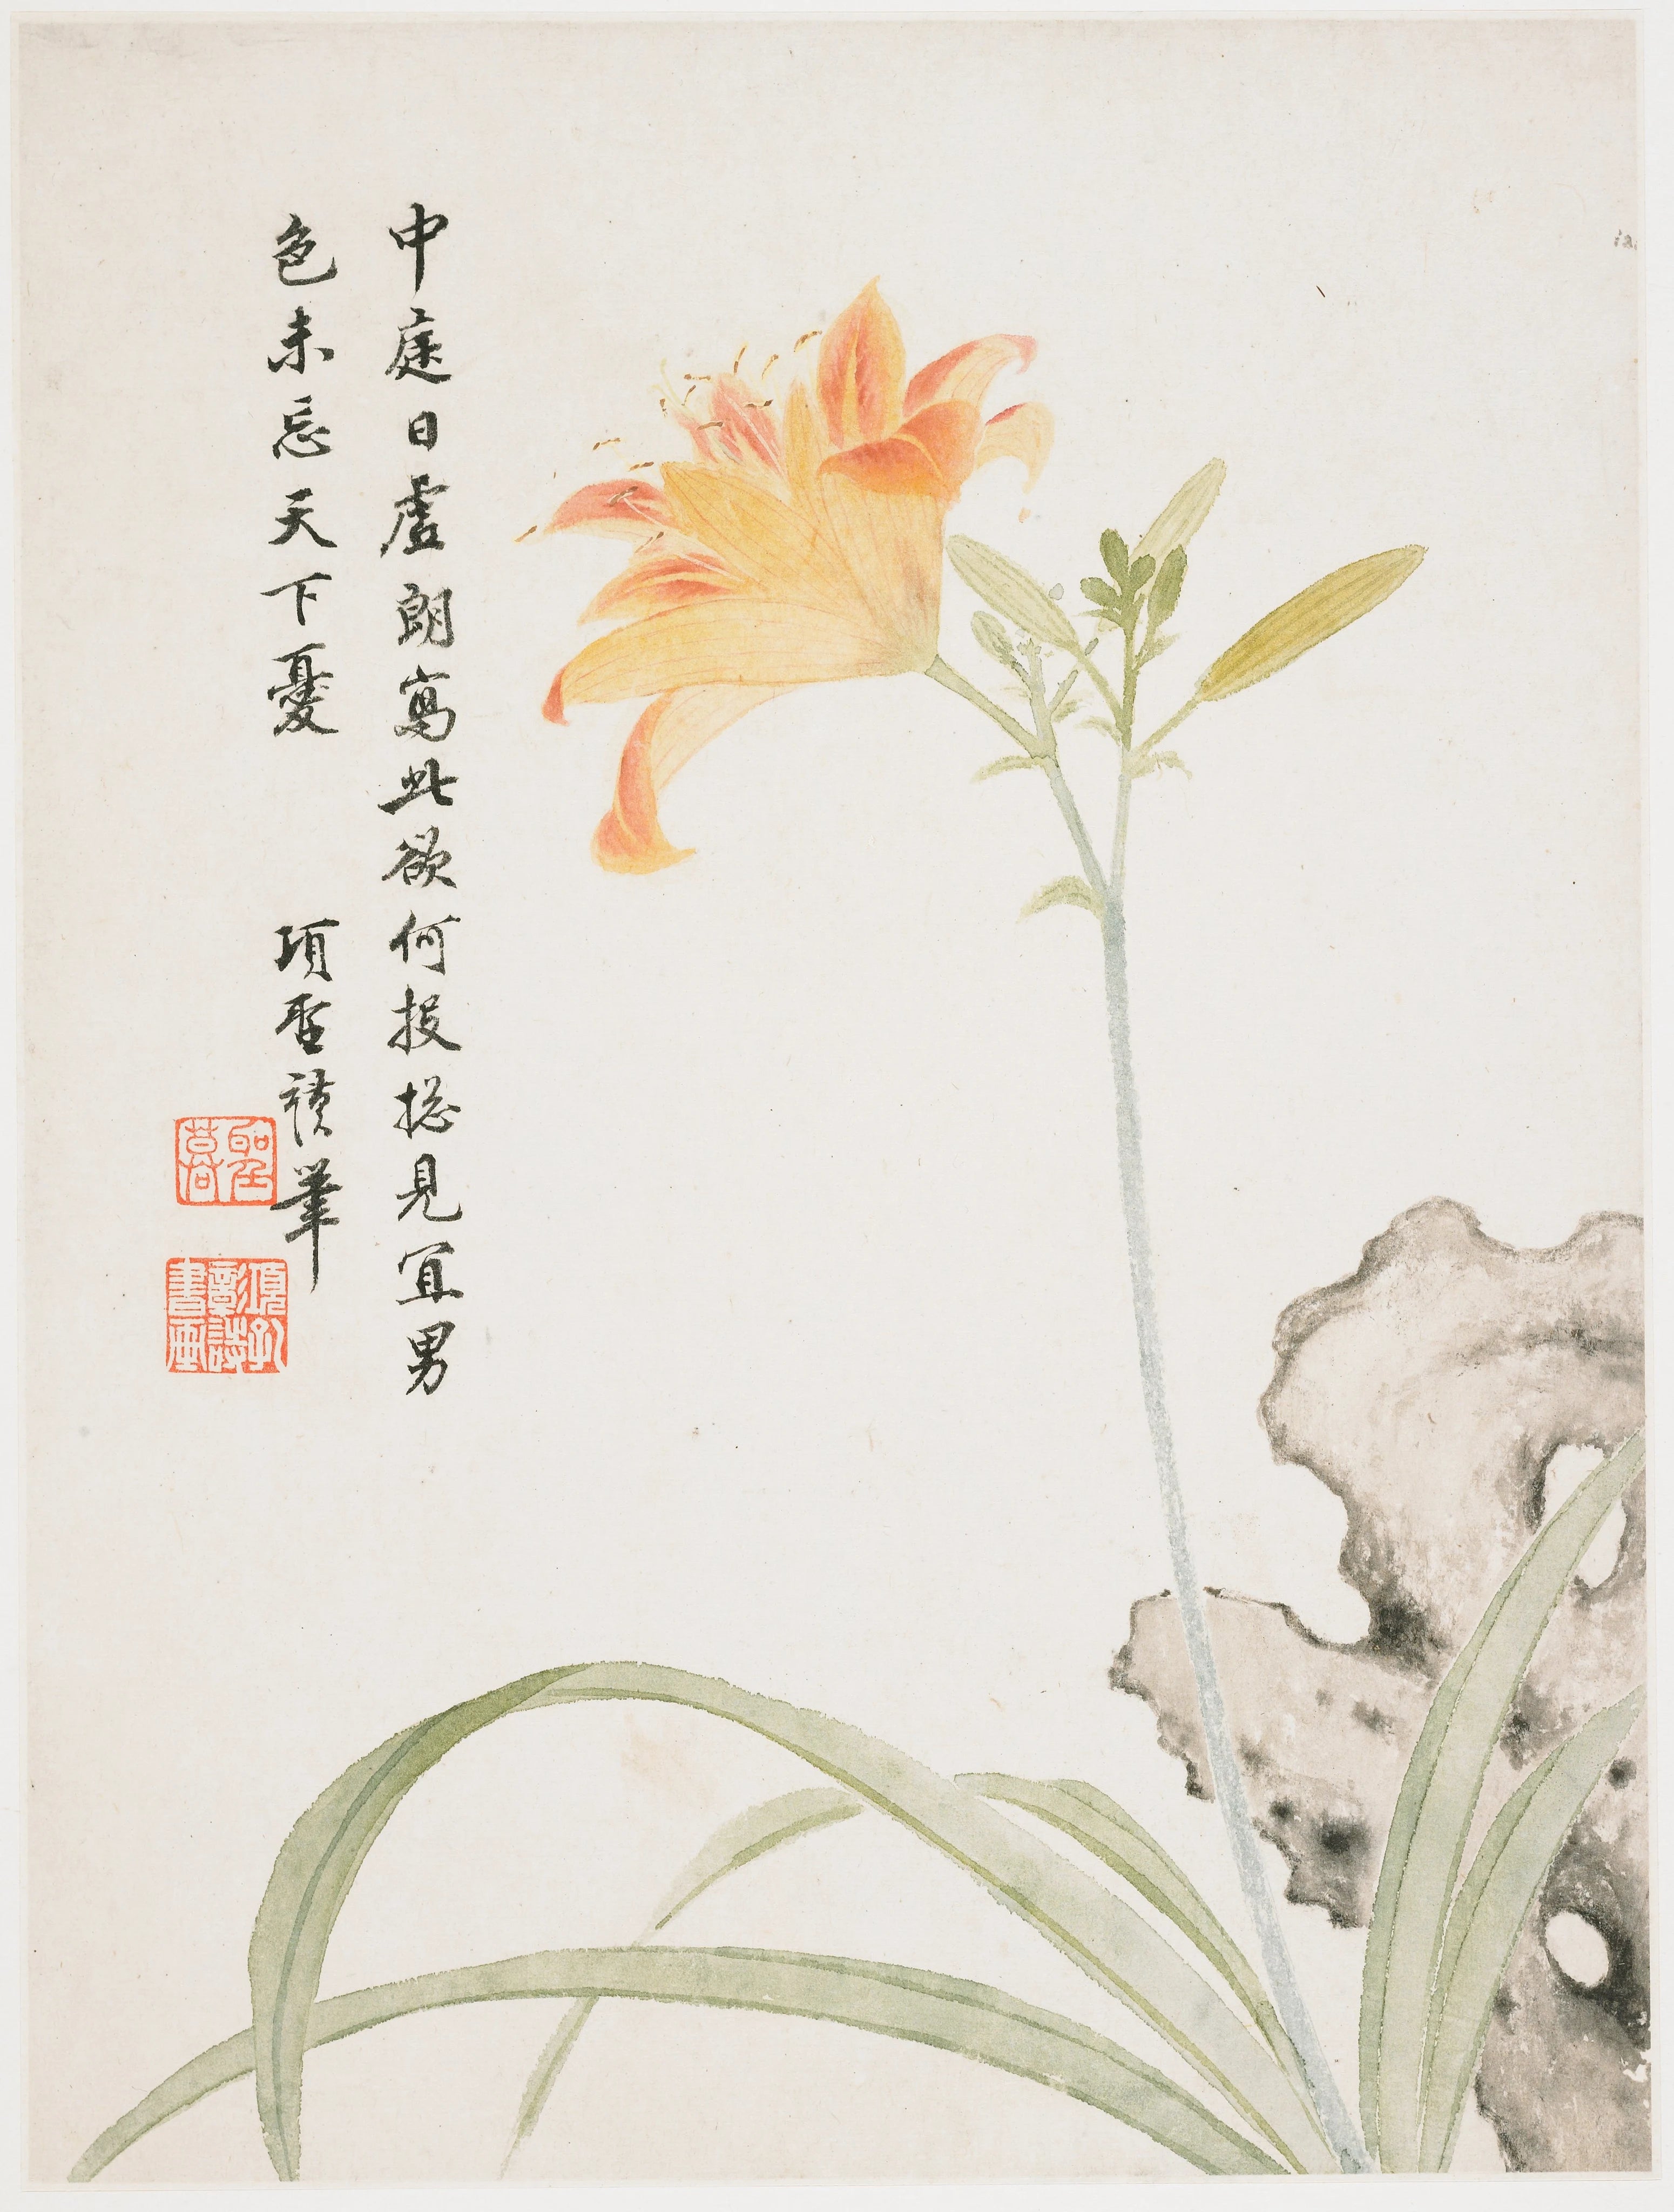 中庭日虛朗寫此欲何投捴見冝男
色未忘天下憂 項聖謨筆
聖謩
項孔彰詩書畫